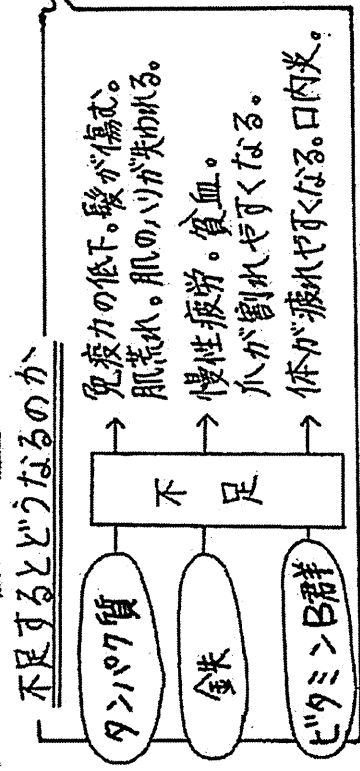 不足するとどうなるのか
タンパク質
鉄
ビタミンB群
不足
免疫力の低下。髪が傷む。
肌荒れ。肌のハリが失われる。
慢性疲労。貧血。
爪が割れやすくなる。
体が疲れやすくなる。口内炎。